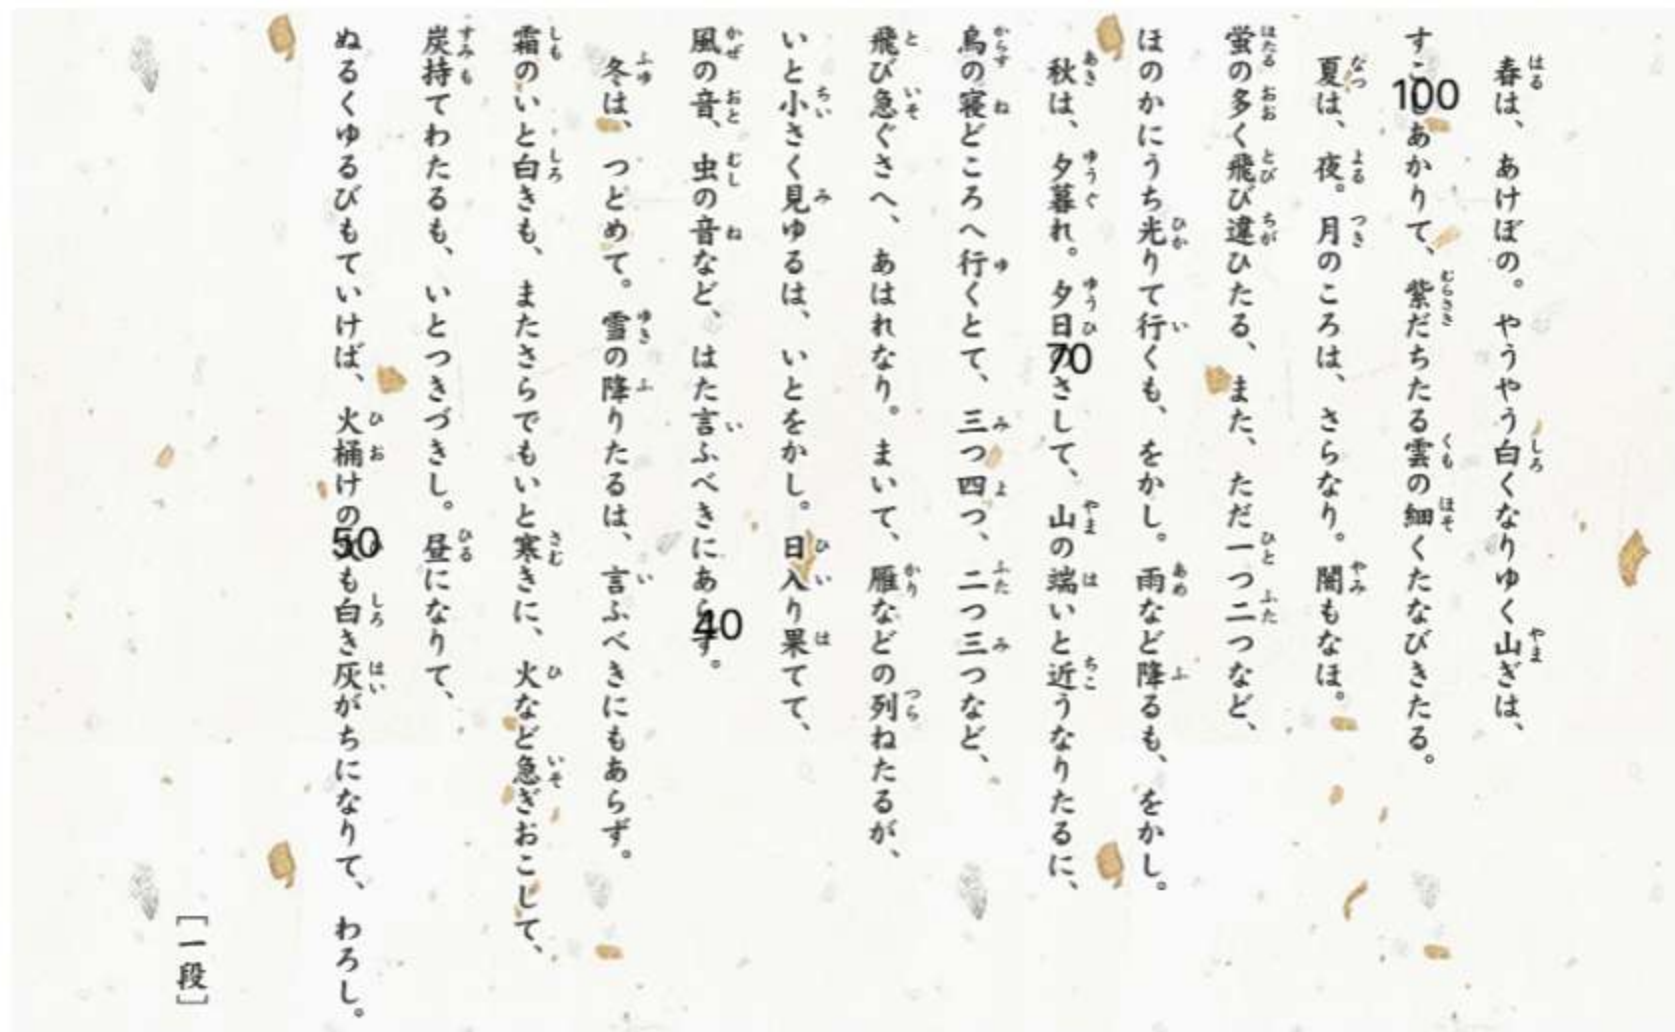 春は、あけぼの。やうやう白くなりゆく山ぎは、
すこしあかりて、紫だちたる雲の細くたなびきたる。
夏は、夜。月のころは、さらなり。闇もなほ。
蛍の多く飛び違ひたる、また、ただ一つ二つなど、
ほのかにうち光りて行くも、をかし。雨など降るも、をかし。
秋は、夕暮れ。夕日のさして、山の端いと近うなりたるに、
烏の寝どころへ行くとて、三つ四つ、二つ三つなど、
飛び急ぐさへ、あはれなり。まいて、雁などの列ねたるが、
いと小さく見ゆるは、いとをかし。日入り果てて、
風の音、虫の音など、はた言ふべきにあらず。
冬は、つとめて。雪の降りたるは、言ふべきにもあらず。
霜のいと白きも、またさらでもいと寒きに、火など急ぎおこして、
炭持てわたるも、いとつきづきし。昼になりて、
ぬるくゆるびもていけば、火桶けの火も白き灰がちになりて、わろし。
[一段]
100
70
40
50